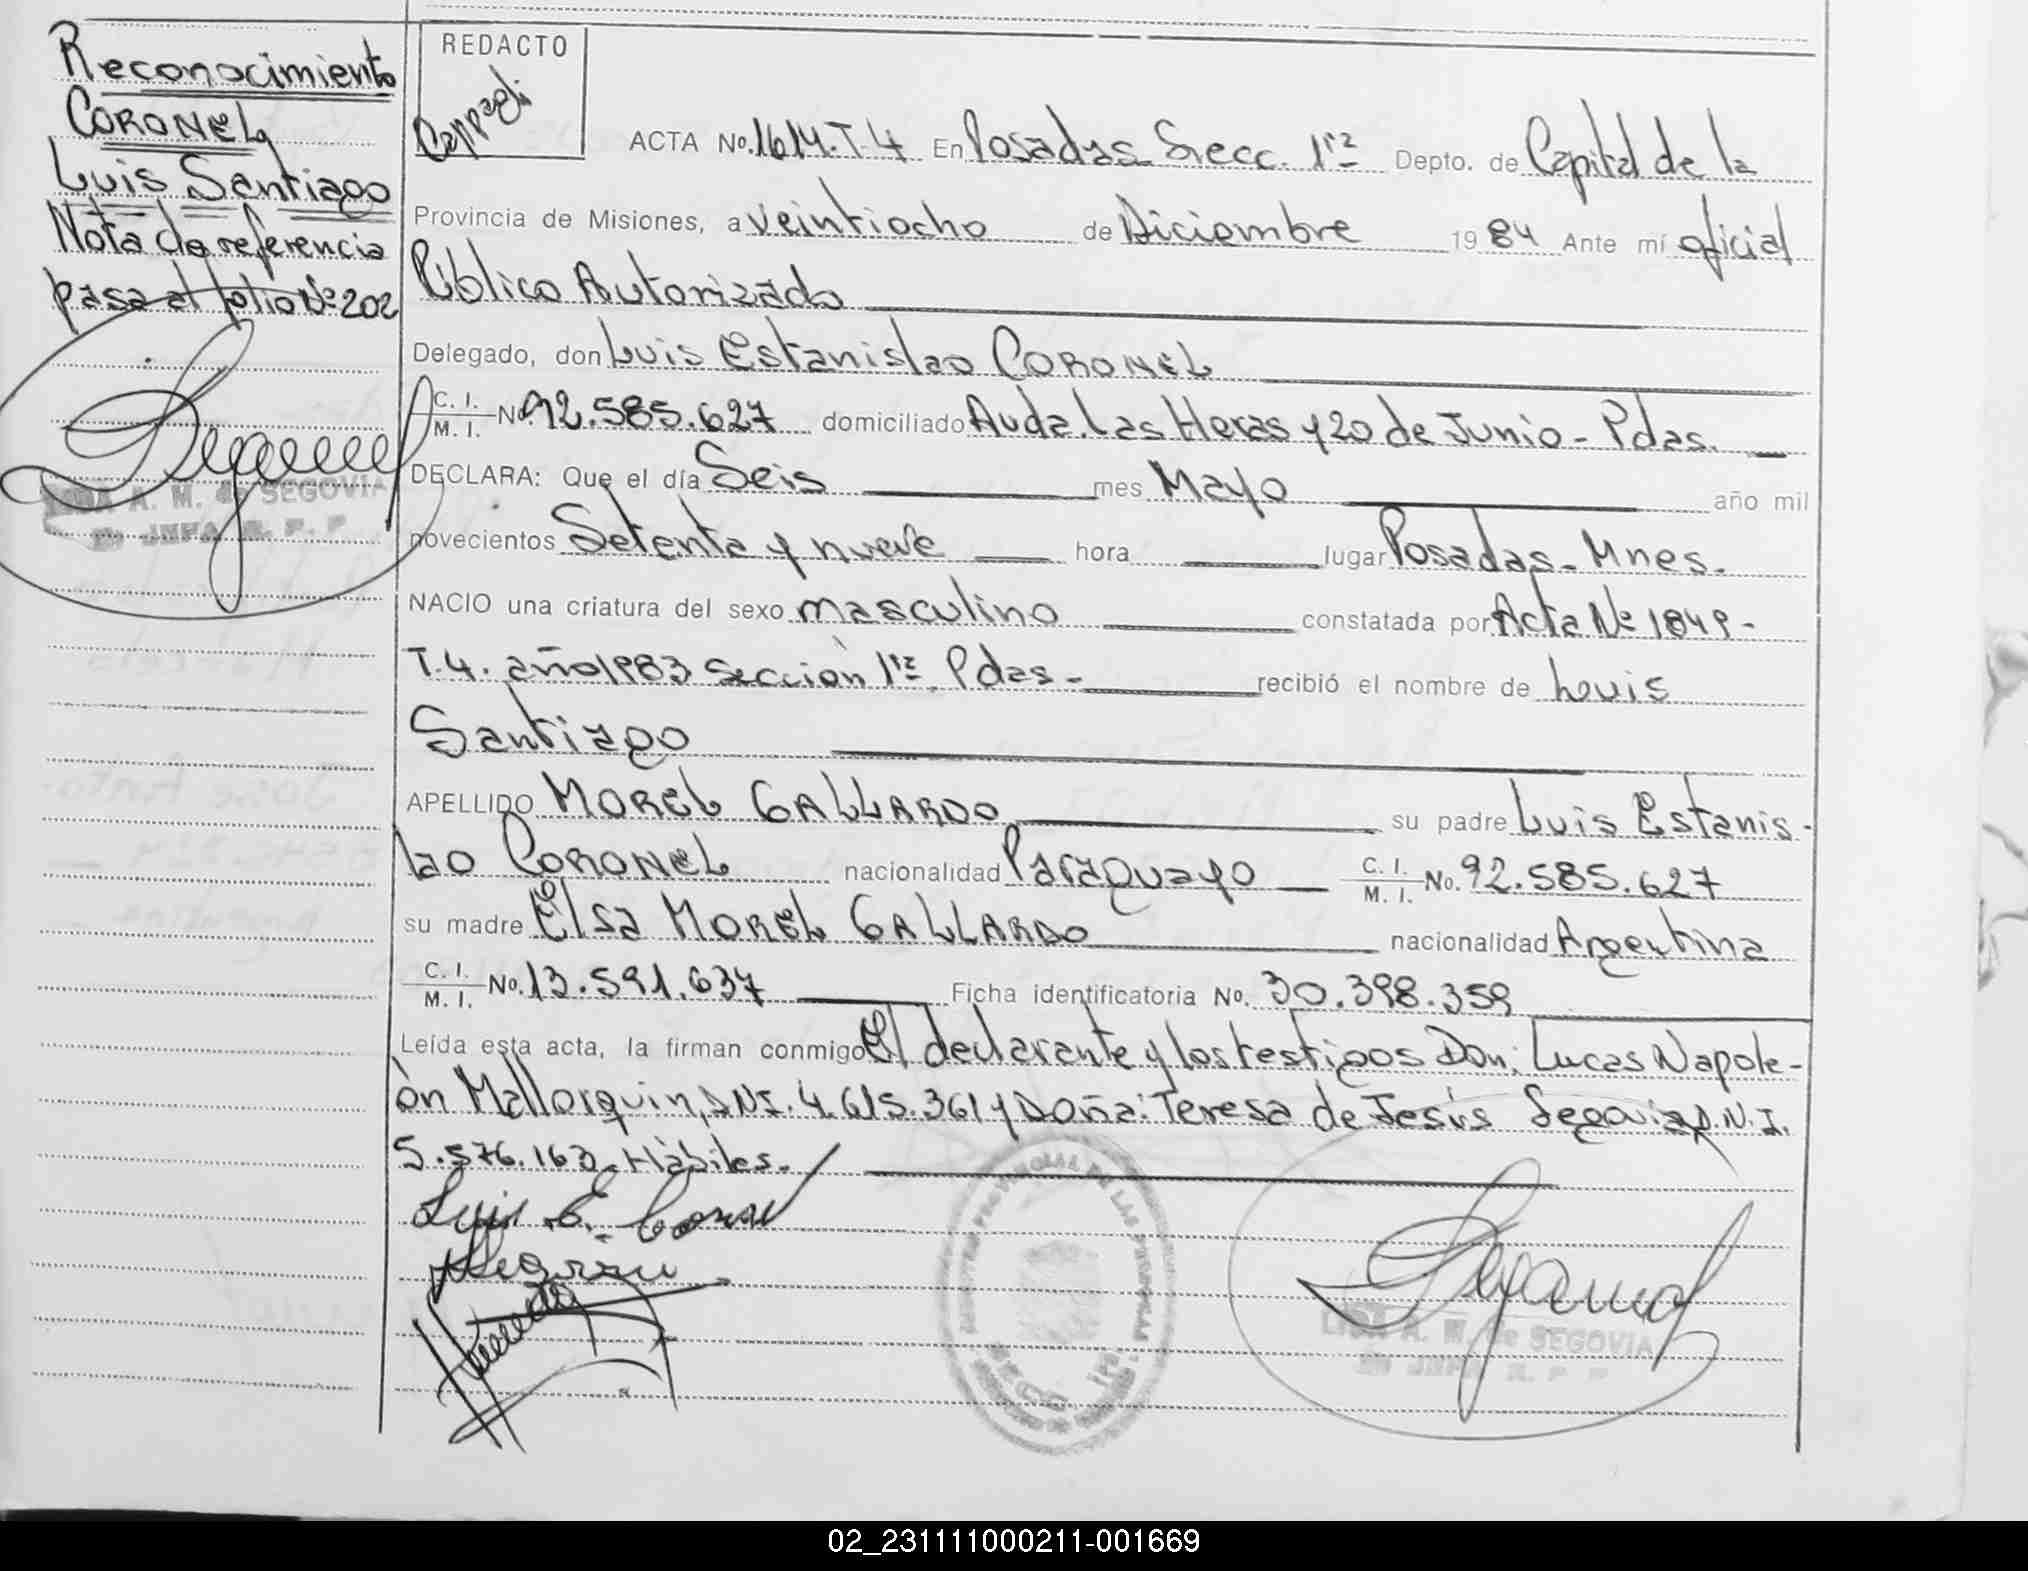 Reconocimiento
CORONEL
Luis Santiago
Nota de referencia
pasa al folio Nº 202
LIDA A. M. de SEGOVIA
REDACTO
ACTA No. 1614. T. 4 En Posadas Secc. 1ra Depto. de Capital de la
Provincia de Misiones, a veintiocho de Diciembre 19 84 Ante mí oficial
Público Autorizado
Delegado, don Luis Estanislao CORONEL
C. I. / M. I. No. 92.585.627 domiciliado Avda. Las Heras y 20 de Junio - Pdas.
DECLARA: Que el día Seis mes Mayo año mil
novecientos Setenta y nueve hora lugar Posadas - Mnes.
NACIO una criatura del sexo masculino constatada por Acta Nº 1849 -
T. 4. año 1983 Sección 1ra Pdas - recibió el nombre de Luis
Santiago
APELLIDO MOREL GALLARDO su padre Luis Estanis-
lao CORONEL nacionalidad Paraguayo C. I. / M. I. No. 92.585.627
su madre Elsa MOREL GALLARDO nacionalidad Argentina
C. I. / M. I. No. 13.591.637 Ficha identificatoria No. 30.398.359
Leída esta acta, la firman conmigo El declarante y los testigos Don: Lucas Napole-
ón Mallorquin, DNI. 4.615.361 y Doña: Teresa de Jesús Segovia D.N.I.
5.576.163. Hábiles.
Luis E. Coronel
REGISTRO PROVINCIAL DE LAS PERSONAS
LIDA A. M. de SEGOVIA
02_231111000211-001669